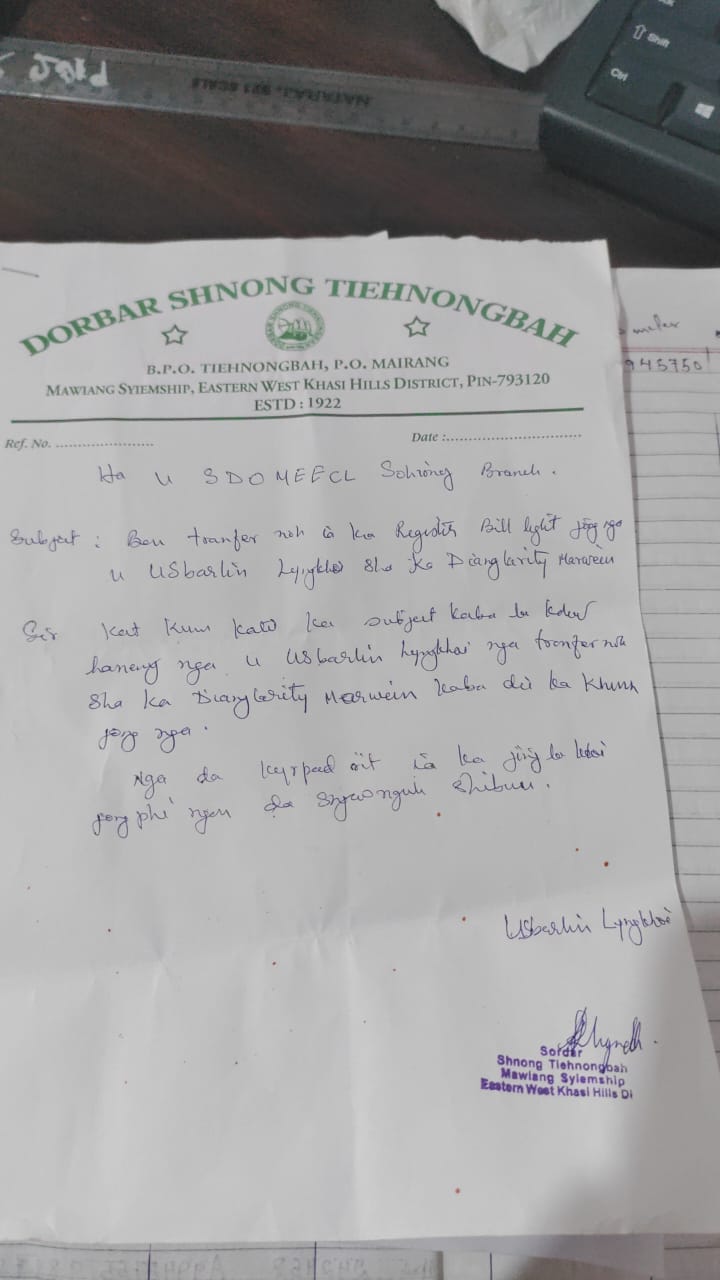 Shift
Ctrl
NATARAJ. 621 SCALE
DORBAR SHNONG TIEHNONGBAH
B.P.O. TIEHNONGBAH, P.O. MAIRANG
MAWIANG SYIEMSHIP, EASTERN WEST KHASI HILLS DISTRICT, PIN-793120
ESTD : 1922
meter
945750
Ref. No. ........................
Date :.................................
Ha u SDO MEECL Sohiong Branch.
Subject : Ban tranfer noh ia ka Register Bill light jong nga
u USbarlin Lyngkhoi Sha Ka Dianglarity Marwein
Sir Kat Kum kato ka subject kaba la kdew
haneng nga u USbarlin Lyngkhoi nga tranfer noh
Sha ka Dianglarity Marwein kaba dei ka Khun
jong nga.
Nga da kyrpad eit ia ka jingla
jong phi ngan da Sngewnguh Shibun.
USbarlin Lyngkhoi
Sordar
Shnong Tiehnongbah
Mawiang Syiemship
Eastern West Khasi Hills Di